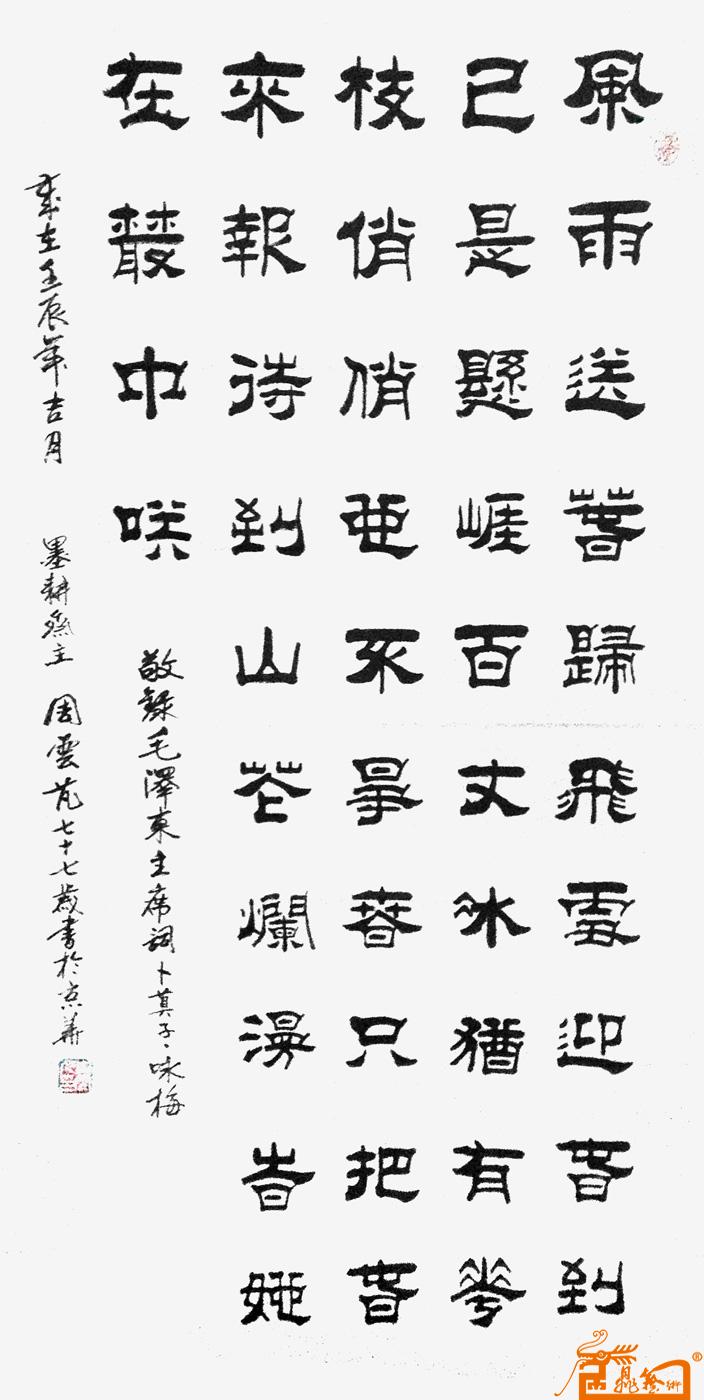 風雨送春歸飛雪迎春到
已是懸崖百丈冰猶有華
枝俏俏也不爭春只把春
來報待到山花爛漫時她
在叢中咲
敬錄毛澤東主席詞卜莫子·咏梅
歲在壬辰年吉月 墨耕齋主 周雲芃七十七歲書於京華